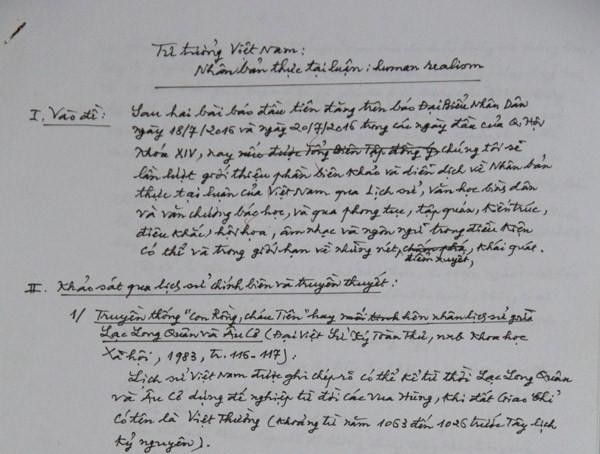 Tư tưởng Việt Nam:
Nhân bản thực tại luận: human realism
I. Vào đề: Sau hai bài báo đầu tiên đăng trên báo Đại Biểu Nhân Dân
ngày 18/7/2016 và ngày 20/7/2016 trong các ngày đầu của Q. Hội
Khóa XIV, nay nếu được Tổng Biên Tập đồng ý chúng tôi sẽ
lần lượt giới thiệu phần biên khảo và diễn dịch về Nhân bản
thực tại luận của Việt Nam qua Lịch sử, văn học bình dân
và văn chương bác học, và qua phong tục, tập quán, Kiến trúc,
điêu khắc, hội họa, âm nhạc và ngôn ngữ trong điều kiện
có thể và trong giới hạn về những nét chấm phá, khái quát.
điểm xuyết,
II. Khảo sát qua lịch sử chính biên và truyền thuyết:
1/ Truyền thống "Con Rồng, cháu Tiên" hay mối tình hôn nhân lịch sử giữa
Lạc Long Quân và Âu Cơ (Đại Việt Sử Ký Toàn Thư, nxb Khoa học
Xã hội, 1983, tr. 116-117):
Lịch sử Việt Nam được ghi chép rõ có thể kể từ thời Lạc Long Quân
và Âu Cơ dựng đế nghiệp từ đời các Vua Hùng, khi đất Giao Chỉ
có tên là Việt Thường (khoảng từ năm 1063 đến 1026 trước Tây lịch
Kỷ nguyên).